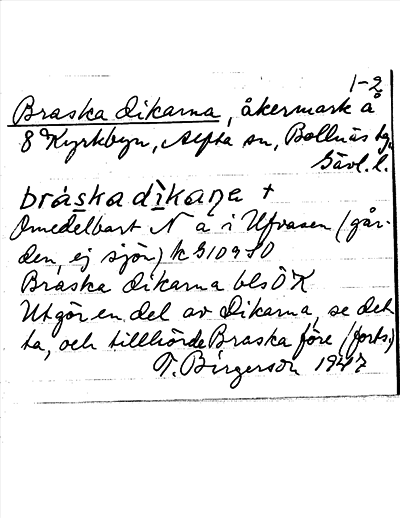 1-2
Braska dikarna, åkermark å
8 Kyrkbyn, Alfta sn, Bollnäs tg,
Gävl. l.
bráskadìkaṇa +
Omedelbart N a i Ufvasen (går-
den, ej sjön) k G1098D
Braska dikarna bls Ö K
Utgör en del av Dikarna, se det-
ta, och tillhörde Braska före (forts.)
T. Birgerson 1947